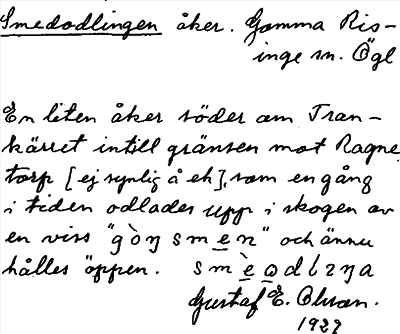 Smedodlingen åker. Gamma Ris-
inge sn. Ögl
En liten åker söder om Tran-
kärret intill gränsen mot Ragne
torp [ej synlig å ek], som en gång
i tiden odlades upp i skogen av
en viss "gòŋ smen" och ännu
hålles öppen. smèodlıŋa
Gustaf E. Olsson.
1927